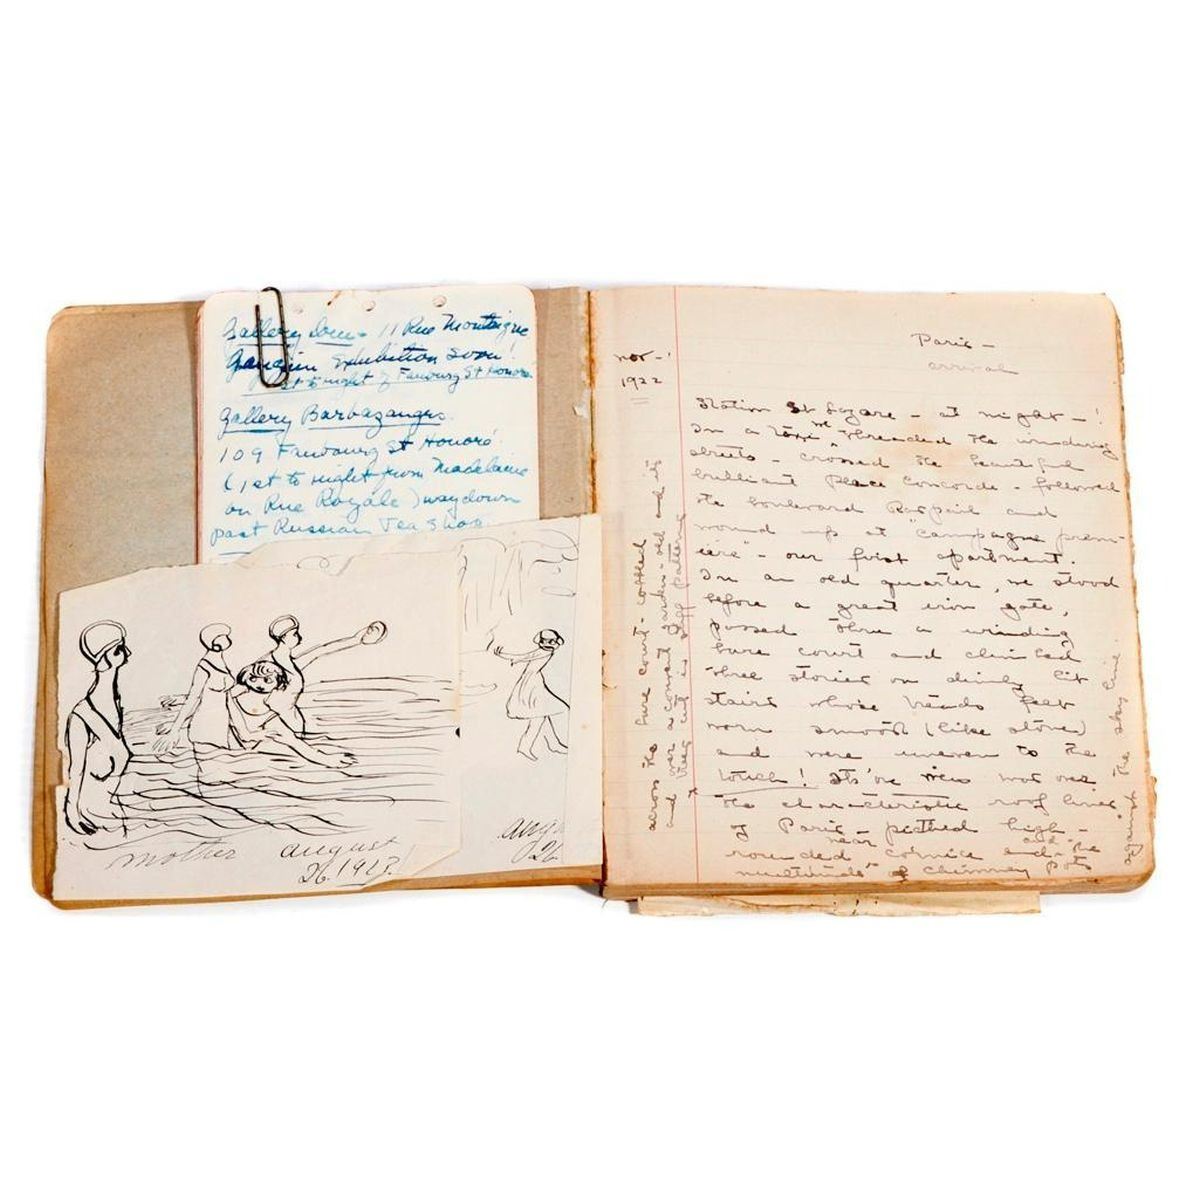 Gallery Dru- 11 Rue Montaigne
Gauguin Exhibition soon!
1st to right of Faubourg St Honoré
Gallery Barbazanges
109 Faubourg St Honoré
(1st to right from Madelaine
on Rue Royale) way down
past Russian Tea Shop
mother august
26. 1923
aug
26
Nov-!
1922
Paris -
arrival
Station St Lazare - at night - !
In a taxi we threaded the winding
streets - crossed the beautiful
brilliant Place Concorde - followed
the boulevard Raspail and
wound up at "Campagne prem-
iere" - our first apartment.
In an old quarter, we stood
before a great iron gate,
passed thru a winding
bare court and climbed
three stories on dimly lit
stairs whose treads felt
worn smooth (like stone)
and were uneven to the
touch! view was one
x the characteristic roof lines
of Paris - pitched high -
rounded near cornice and the
multitude of chimney pots
against the sky line
across the bare court - cobbled
and over a convent garden - old and its
trees cut in stiff pattern